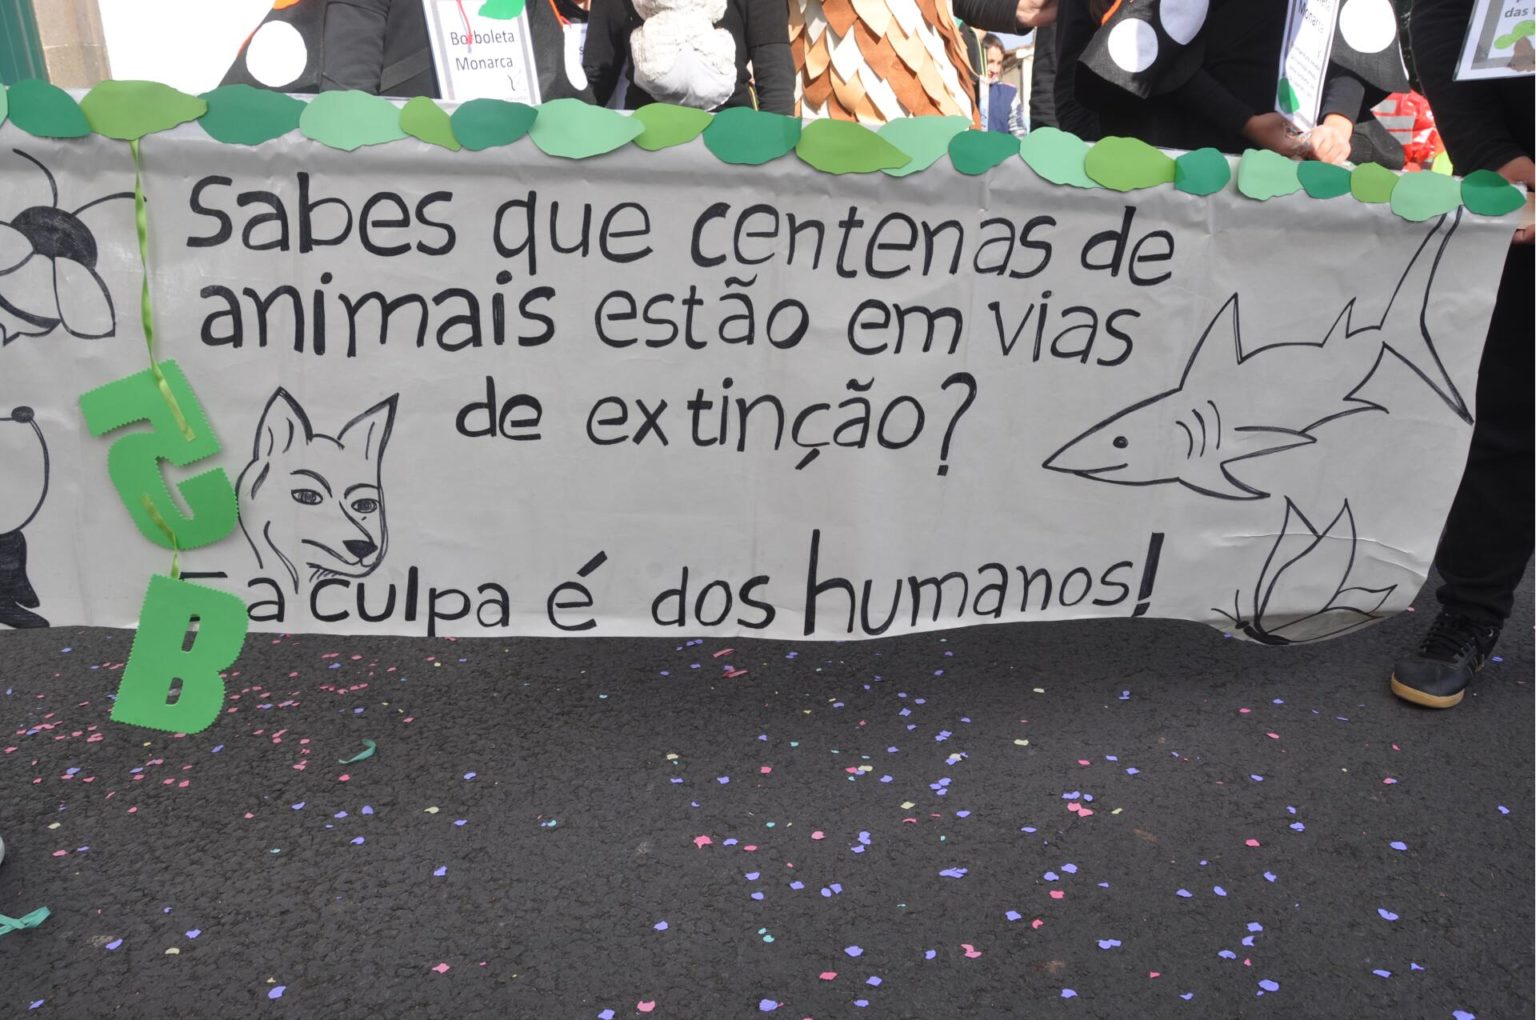 Borboleta
Monarca
Monarca
das
Sabes que centenas de
animais estão em vias
de extinção?
E a culpa é dos humanos!
5
B